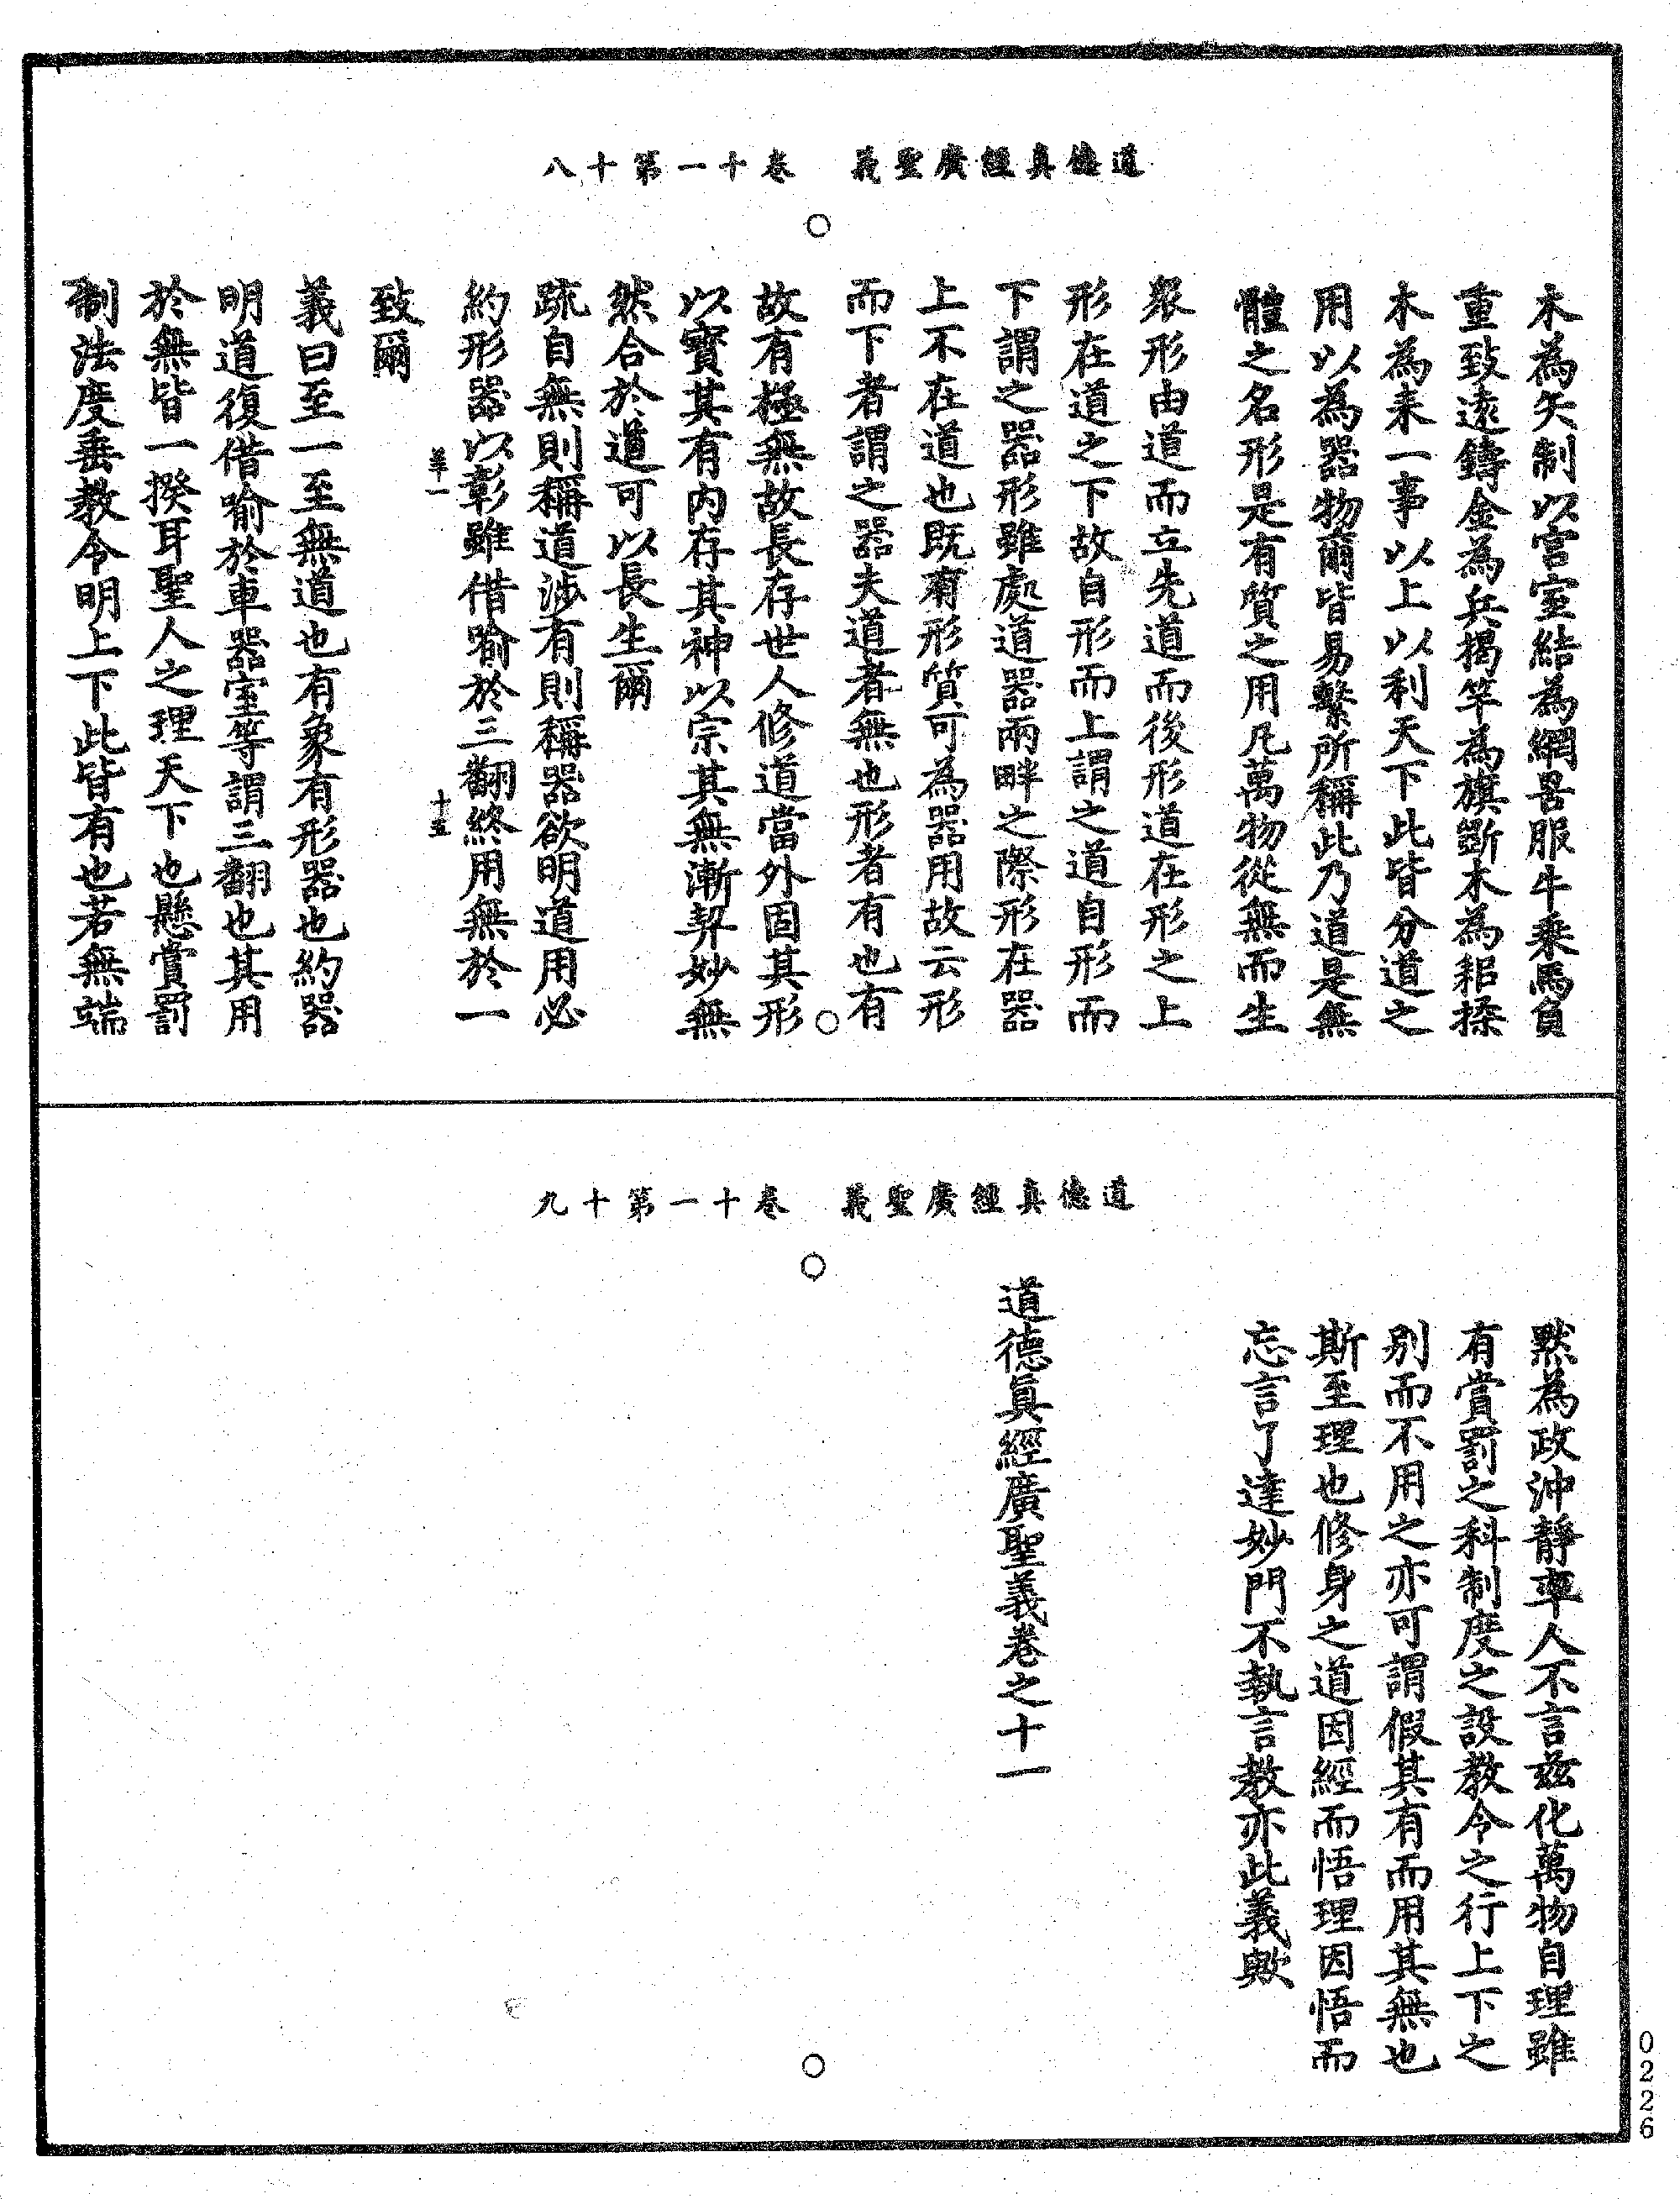 道德真經廣聖義　卷十一第十八
木為矢制以宮室結為網罟服牛乗馬負
重致遠鑄金為兵揭竿為旗斷木為耜揉
木為耒一事以上以利天下此皆分道之
用以為器物爾皆易繫所稱此乃道是無
體之名形是有質之用凡萬物從無而生
衆形由道而立先道而後形道在形之上
形在道之下故自形而上謂之道自形而
下謂之器形雖處道器兩畔之際形在器
上不在道也既有形質可為器用故云形
而下者謂之器夫道者無也形者有也有
故有極無故長存世人修道當外固其形
以寳其有内存其神以宗其無漸契妙無
然合於道可以長生爾
疏自無則稱道涉有則稱器欲明道用必
約形器以彰雖借喻於三翻終用無於一
致爾
義曰至一至無道也有象有形器也約器
明道復借喻於車器室等謂三翻也其用
於無皆一揆耳聖人之理天下也懸賞罰
制法度垂教令明上下此皆有也若無端
道德真經廣聖義　卷十一第十九
黙為政沖靜率人不言兹化萬物自理雖
有賞罰之科制度之設教令之行上下之
别而不用之亦可謂假其有而用其無也
斯至理也修身之道因經而悟理因悟而
忘言了達妙門不執言教亦此義歟
道德真經廣聖義卷之十一
0226